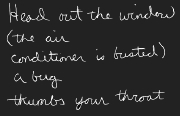 Head out the window
(the air
conditioner is busted)
a bug
thumbs your throat